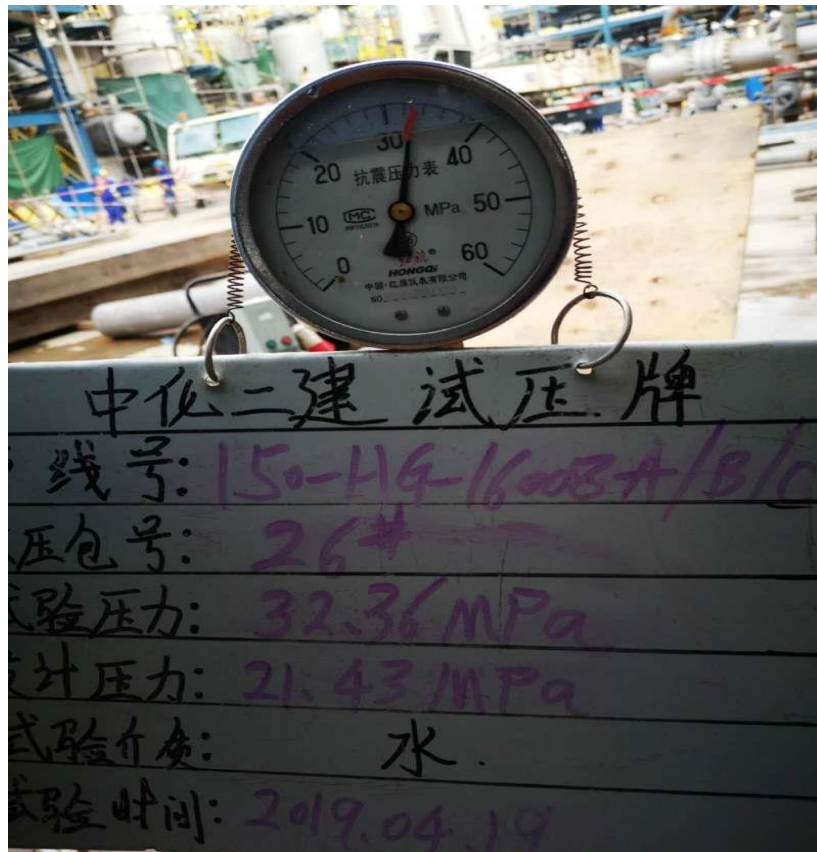 30
20
40
抗震压力表
10
MC
MPa
50
0
60
HONGQI
中国·红旗仪表有限公司
NO.
中化二建 试压牌
线号: 150-HG-16003-A/B/C
压包号: 26#
验压力: 32.36MPa
计压力: 21.43MPa
式验介质: 水.
试验时间: 2019.04.19